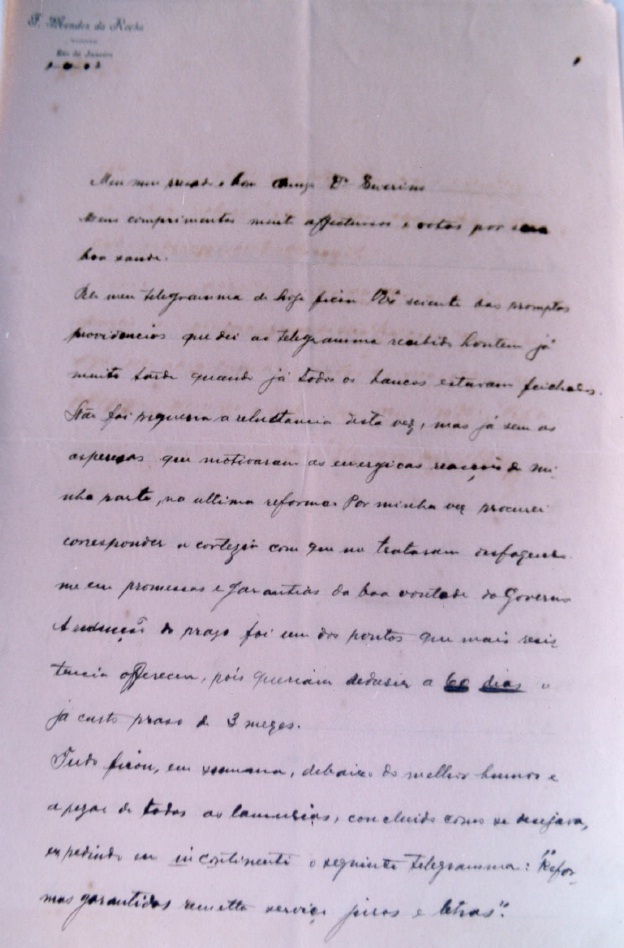 F. Mendes da Rocha
Rio de Janeiro
Meu presado e bom amigo Dr. Severino
Meus comprimentos muit affectuosos e votos por sua
boa saude.
meu telegramma de hoje ficou sciente das promptas
providencias que dei ao telegramma recebido hontem já
muito tarde quando já todos os bancos estavam feichados.
Não foi pequena a reluctancia desta vez, mas já sem as
asperesas que motivaram as energicas reacções de mi-
nha parte, na ultima reforma. Por minha vez procurei
corresponder a cortezia com que me trataram
me em promessas e garantias da boa vontade do Governo
A reducção do praso foi um dos pontos que mais resis-
tencia offereceu, pois queriam dedusir a 60 dias o
já curto praso de 3 mezes.
Tudo ficou, em summa, debaixo do melhor humor e
apezar de todas as lamurias, concluido como se desejava,
expedindo eu incontinenti o seguinte telegramma: "Refor-
mas garantidas remetta serviço juros e letras".